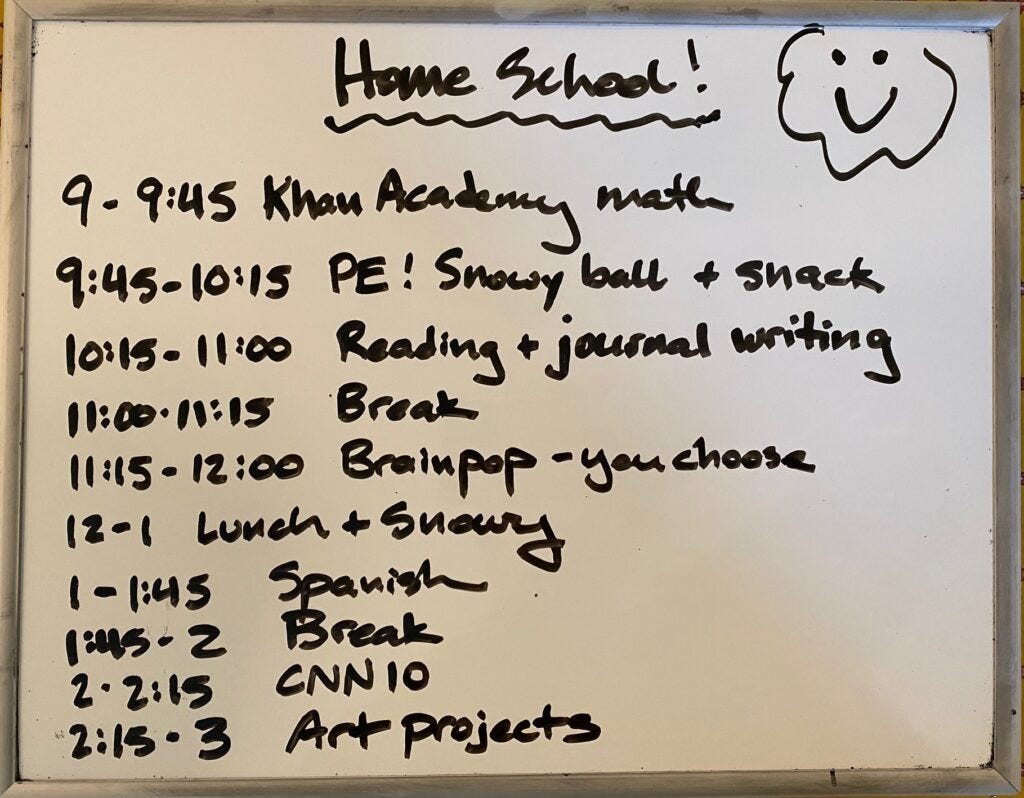 Home School!
9 - 9:45 Khan Academy math
9:45 - 10:15 PE! Snowy ball + snack
10:15 - 11:00 Reading + journal writing
11:00 - 11:15 Break
11:15 - 12:00 Brainpop - you choose
12 - 1 Lunch + Snowy
1 - 1:45 Spanish
1:45 - 2 Break
2 - 2:15 CNN 10
2:15 - 3 Art projects